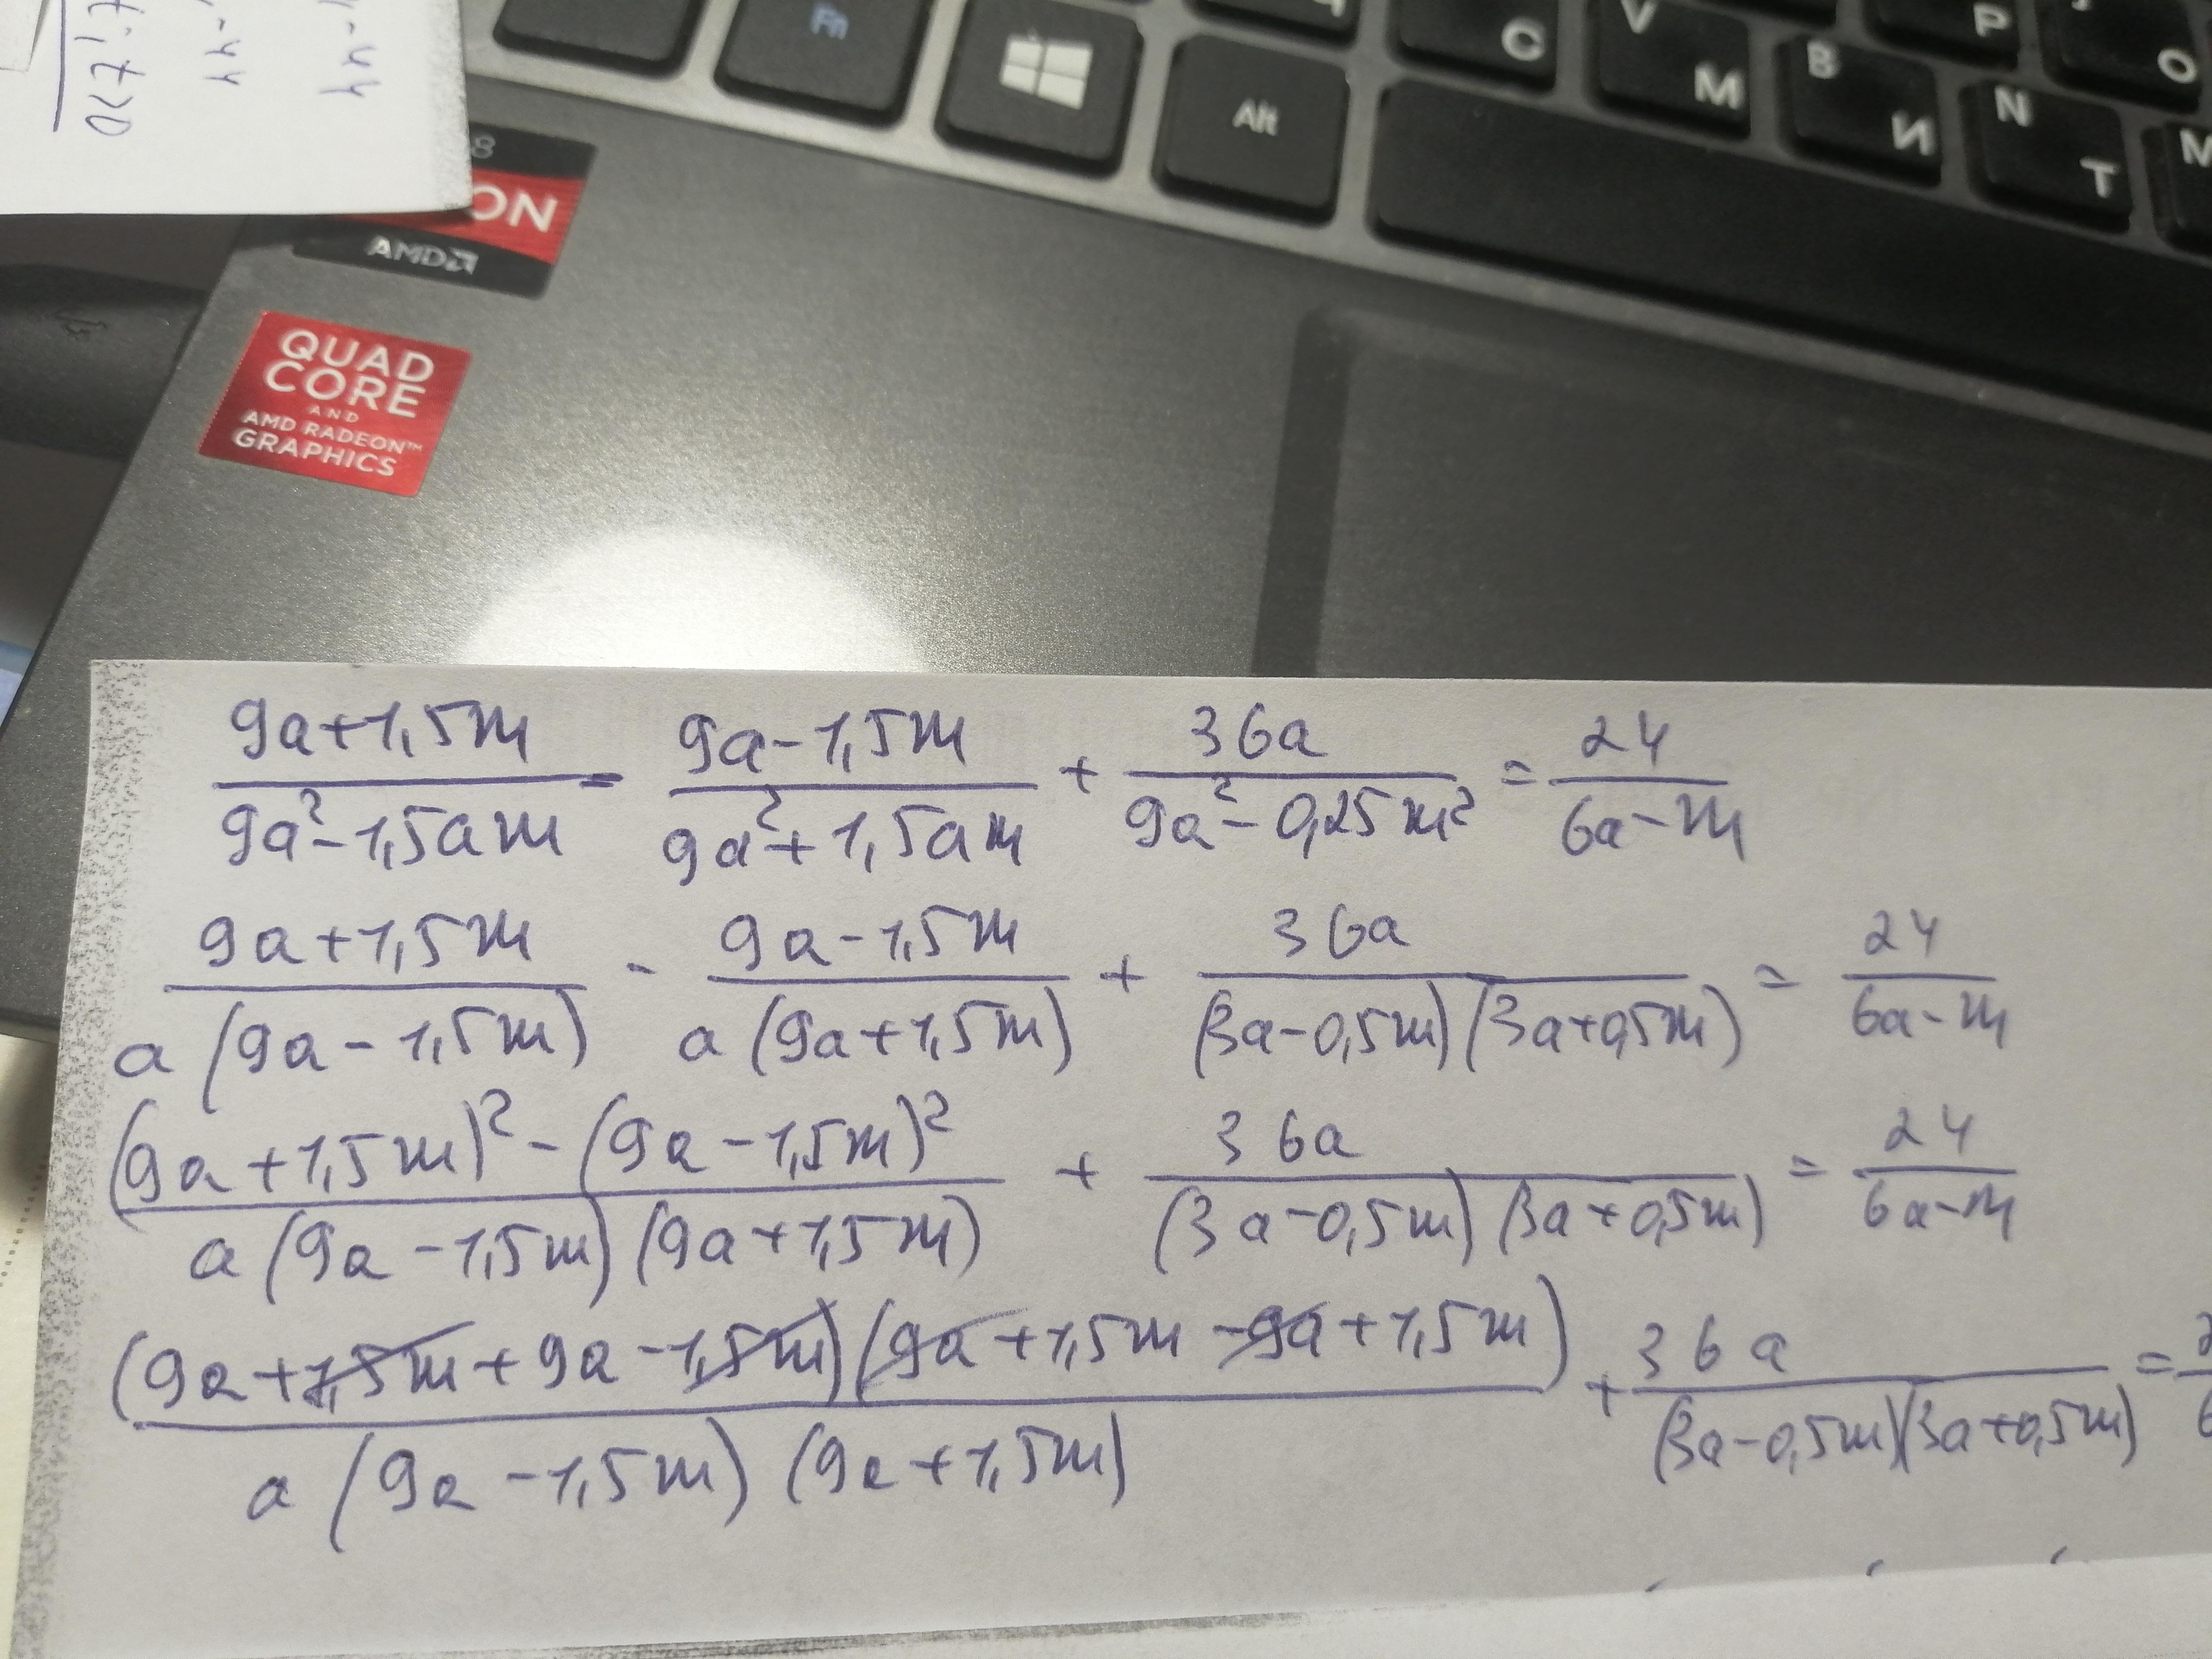 y-44
y-44
t, t>0
Fn
Alt
C
V М
B И
P
N Т
O
M
8
ON
AMD
QUAD
CORE
AND
AMD RADEON™
GRAPHICS
(9a+1,5m)/(9a²-1,5am) - (9a-1,5m)/(9a²+1,5am) + 36a/(9a²-0,25m²) = 24/(6a-m)
(9a+1,5m)/(a(9a-1,5m)) - (9a-1,5m)/(a(9a+1,5m)) + 36a/((3a-0,5m)(3a+0,5m)) = 24/(6a-m)
((9a+1,5m)²-(9a-1,5m)²)/(a(9a-1,5m)(9a+1,5m)) + 36a/((3a-0,5m)(3a+0,5m)) = 24/(6a-m)
((9a+1,5m+9a-1,5m)(9a+1,5m-9a+1,5m))/(a(9a-1,5m)(9a+1,5m)) + 36a/((3a-0,5m)(3a+0,5m)) = 2/6